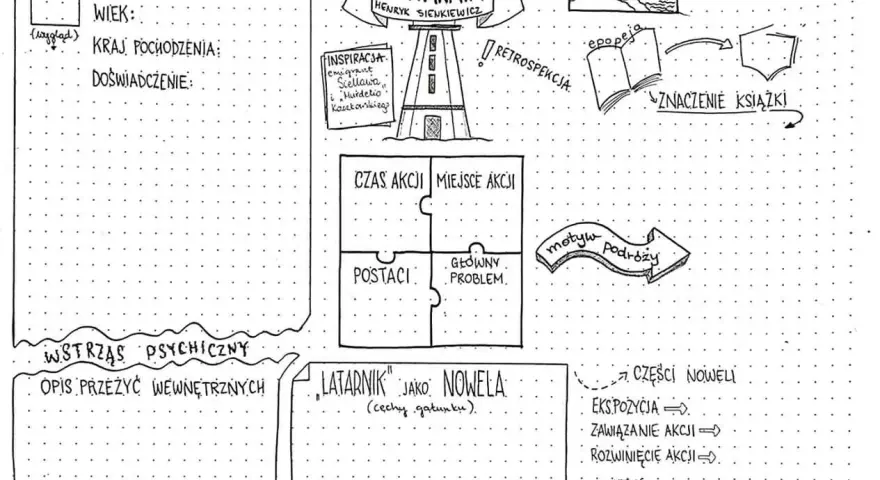 HENRYK SIENKIEWICZ
WIEK:
(wygląd)
KRAJ POCHODZENIA:
DOŚWIADCZENIE:
INSPIRACJA
emigrant
Siellawa
i „Murdelio"
Kaczkowskiego
! RETROSPEKCJA
epopeja
ZNACZENIE KSIĄŻKI
CZAS AKCJI
MIEJSCE AKCJI
POSTACI
GŁÓWNY
PROBLEM
motyw podróży
WSTRZĄS PSYCHICZNY
OPIS PRZEŻYĆ WEWNĘTRZNYCH
„LATARNIK" JAKO NOWELA
(cechy gatunku)
CZĘŚCI NOWELI
EKSPOZYCJA
ZAWIĄZANIE AKCJI
ROZWINIĘCIE AKCJI